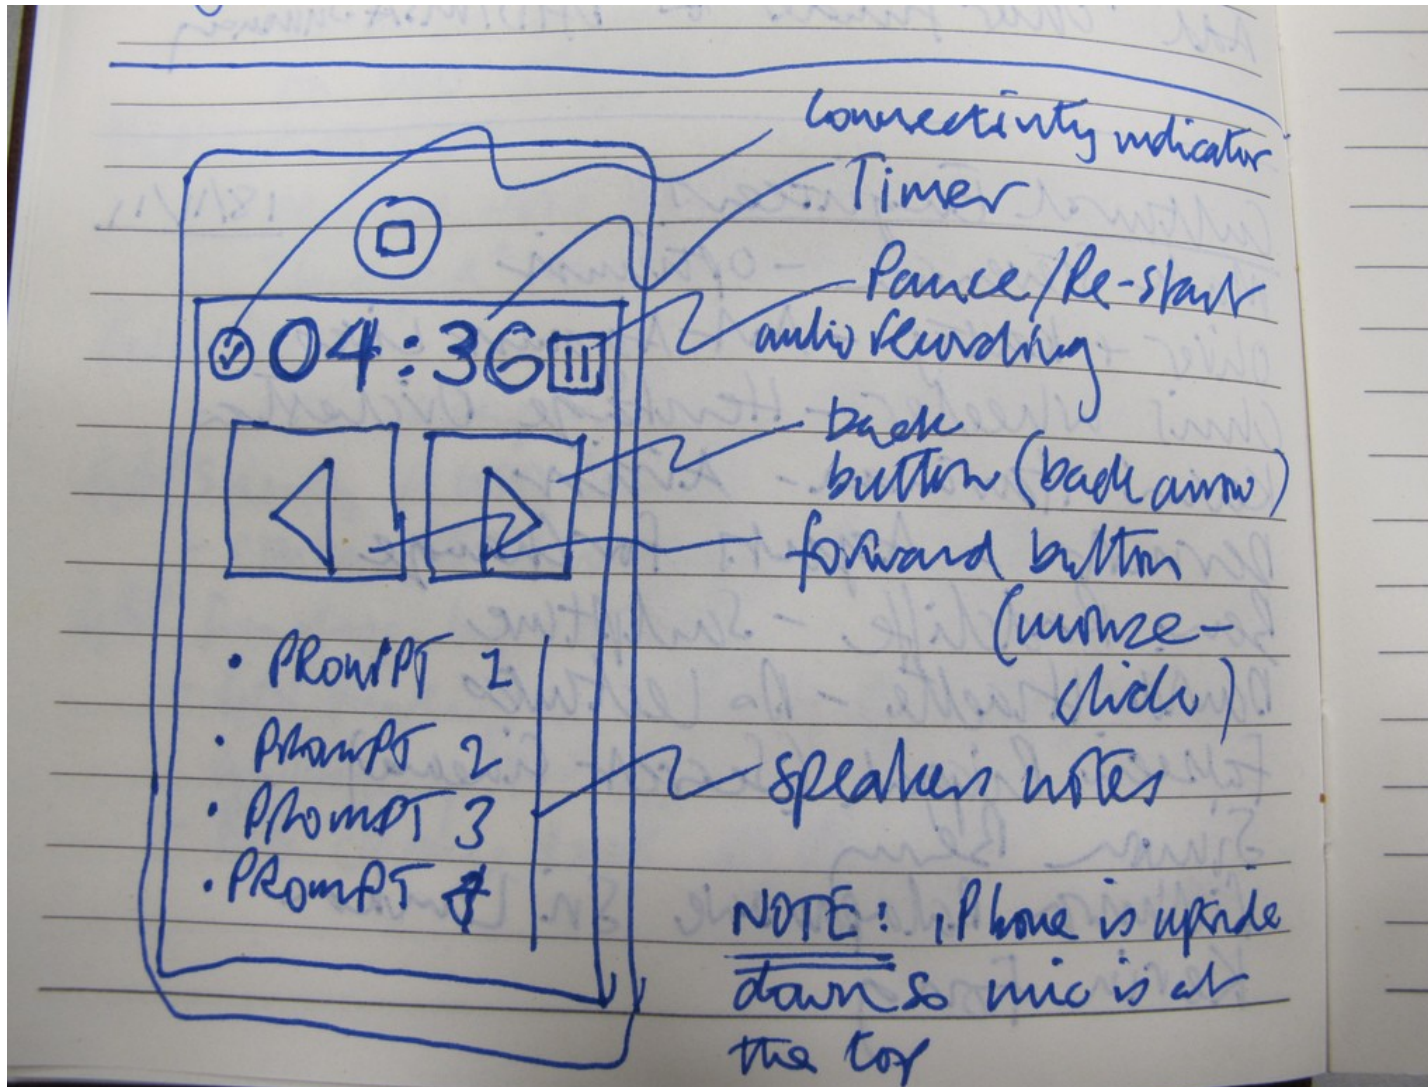 Connectivity indicator
Timer
Pause/Re-start
audio recording
04:36
back
button (back arrow)
forward button
(mouse-
click)
• PROMPT 1
• PROMPT 2
• PROMPT 3
• PROMPT 4
speakers notes
NOTE: iPhone is upside
down so mic is at
the top